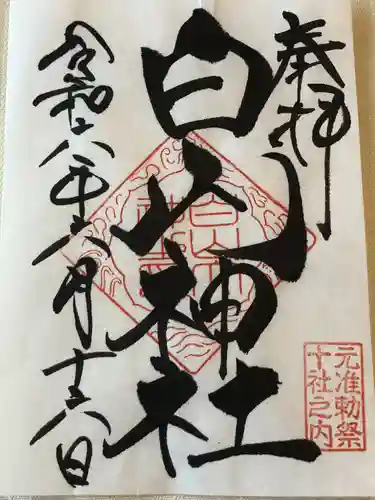 奉拝
白山神社
令和六年六月十六日
元准勅祭
十社之内
白山神社